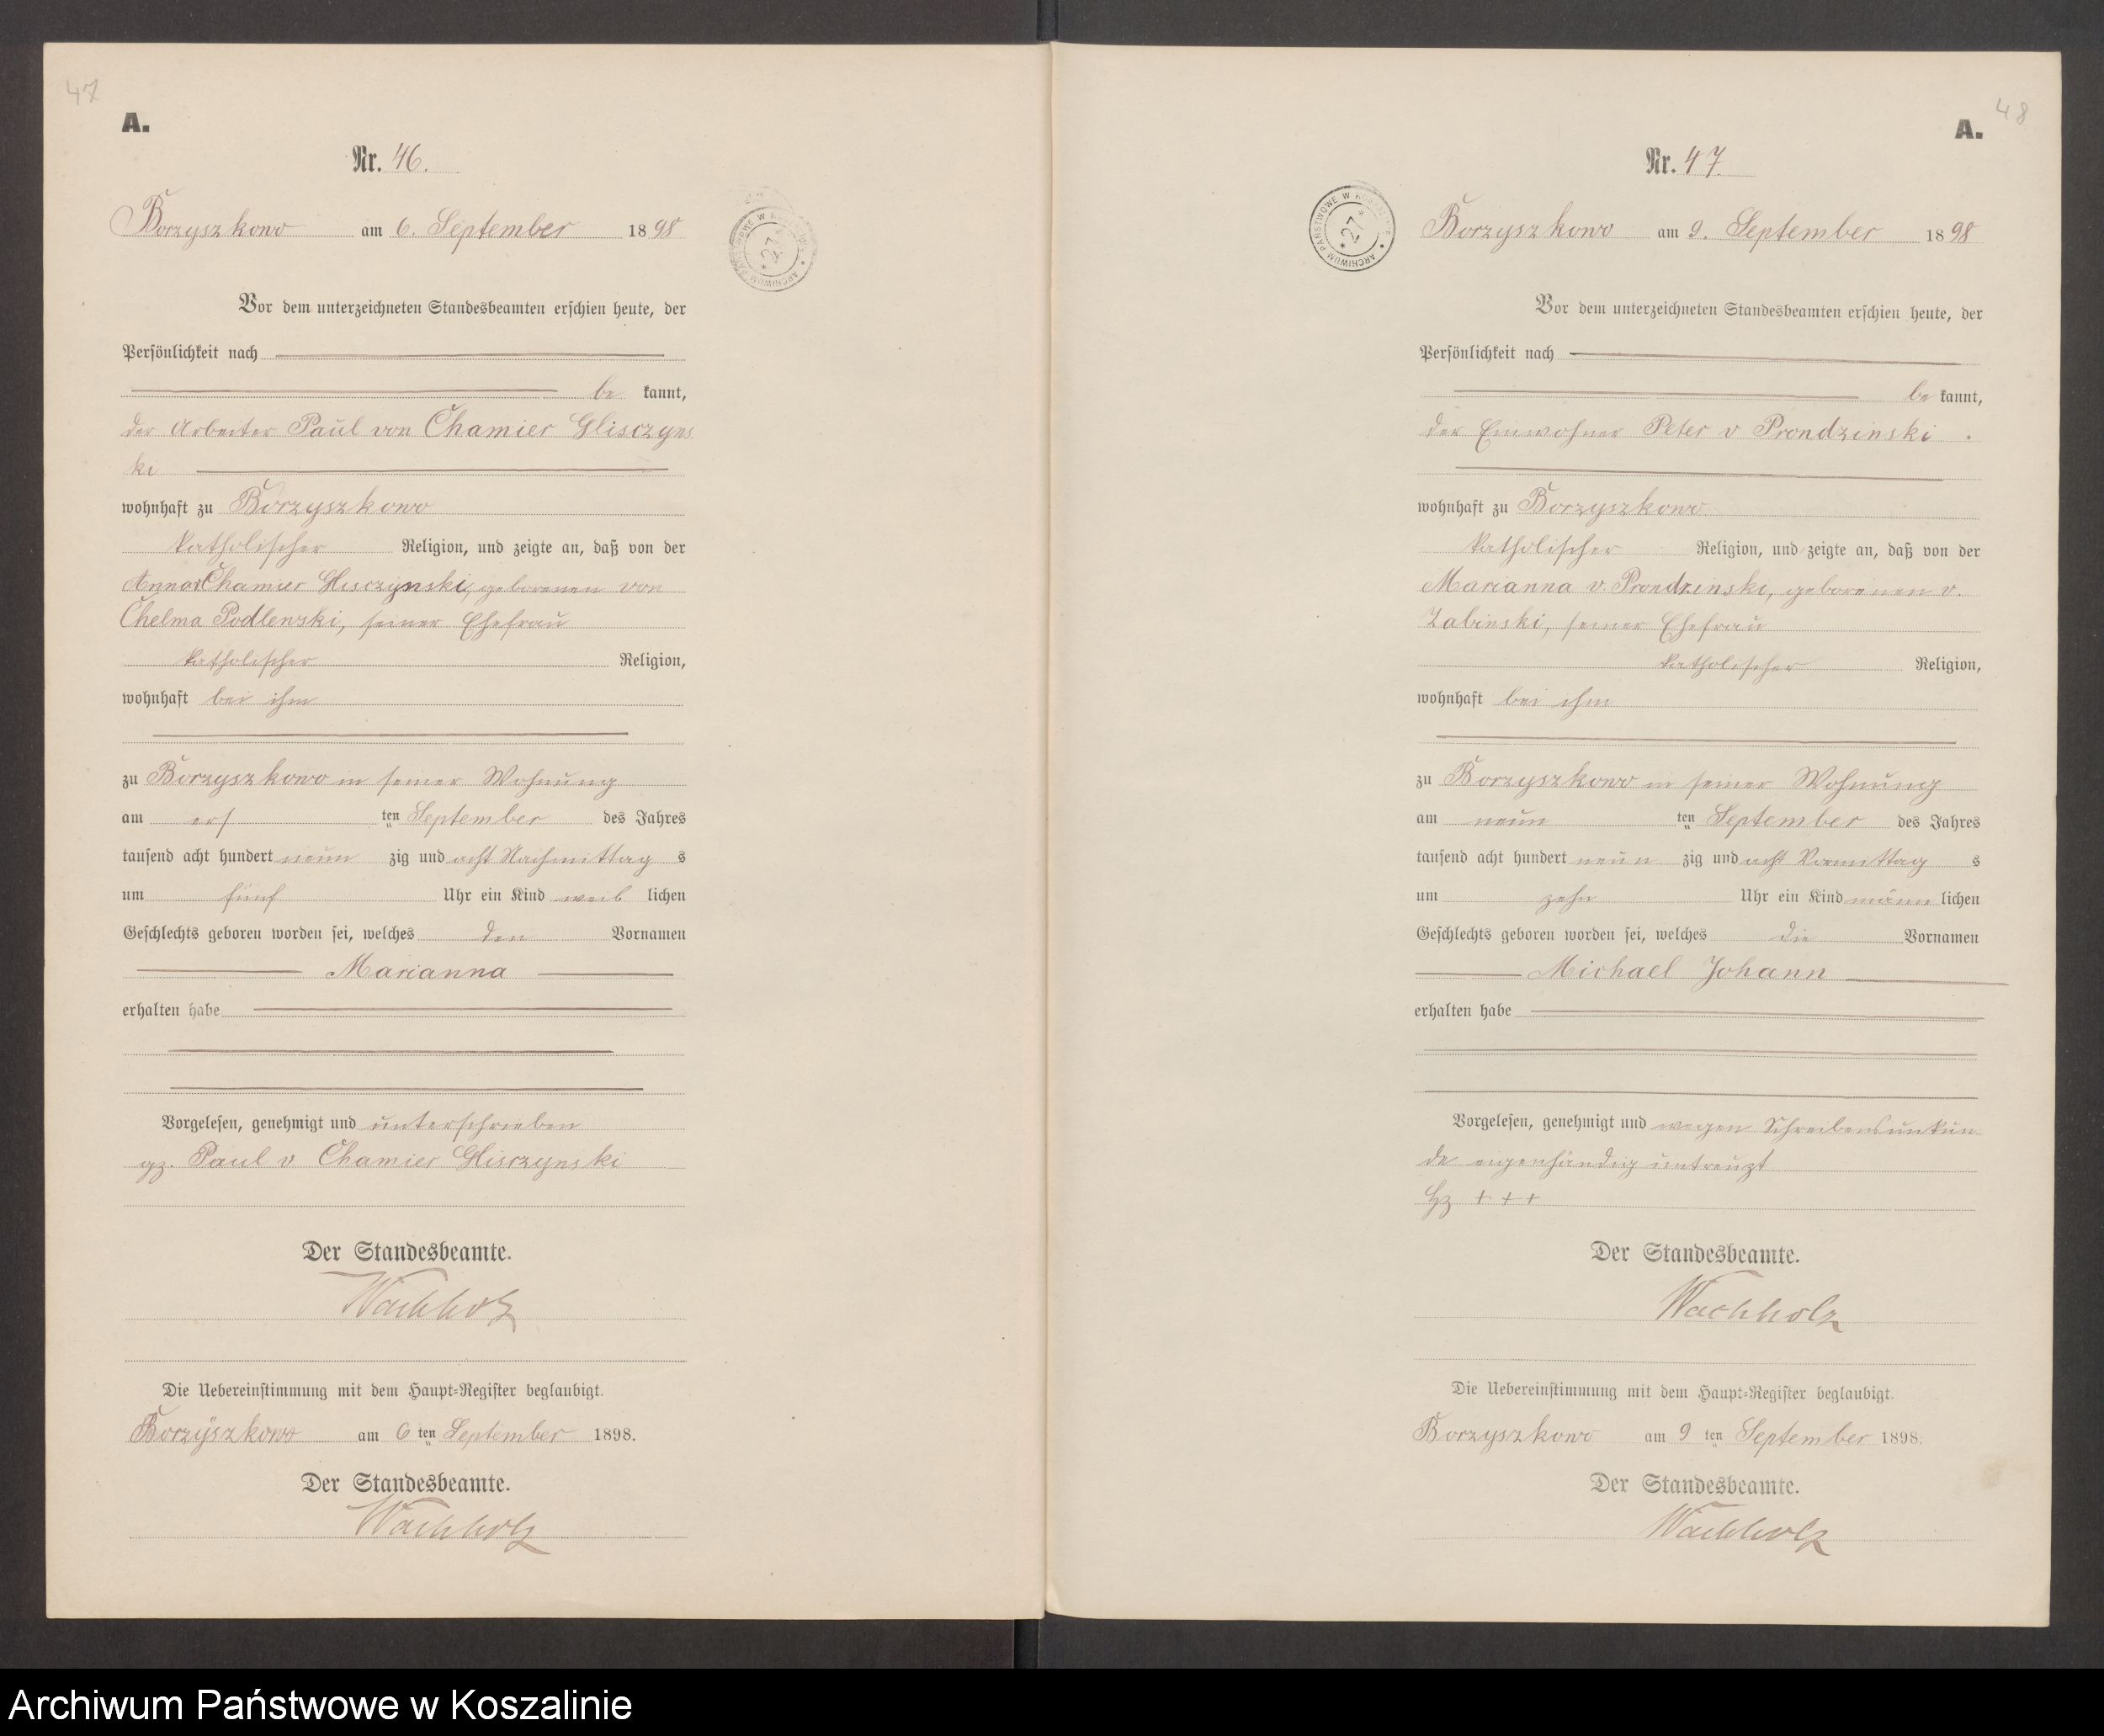 47
A.
Nr. 46.
Borzyszkowo am 6. September 1898
Vor dem unterzeichneten Standesbeamten erschien heute, der
Persönlichkeit nach
be kannt,
der Arbeiter Paul von Chamier Glisczyns
ki
wohnhaft zu Borzyszkowo
katholischer Religion, und zeigte an, daß von der
Anna v Chamier Glisczynski, geborenen von
Chelma Podlenski, seiner Ehefrau
katholischer Religion,
wohnhaft bei ihm
zu Borzyszkowo in seiner Wohnung
am ersten September des Jahres
tausend acht hundert neun zig und acht Nachmittag s
um fünf Uhr ein Kind weib lichen
Geschlechts geboren worden sei, welches den Vornamen
Marianna
erhalten habe
Vorgelesen, genehmigt und unterschrieben
gz. Paul v Chamier Glisczynski
Der Standesbeamte.
Wachholz
Die Uebereinstimmung mit dem Haupt-Register beglaubigt.
Borzyszkowo am 6 ten September 1898.
Der Standesbeamte.
Wachholz
ARCHIWUM PAŃSTWOWE W KOSZALINIE
* 27 *
48
A.
Nr. 47.
ARCHIWUM PAŃSTWOWE W KOSZALINIE
* 27 *
Borzyszkowo am 9. September 1898
Vor dem unterzeichneten Standesbeamten erschien heute, der
Persönlichkeit nach
be kannt,
der Einwohner Peter v Prondzinski
wohnhaft zu Borzyszkowo
katholischer Religion, und zeigte an, daß von der
Marianna v. Prondzinski, geborenen v.
Zabinski, seiner Ehefrau
katholischer Religion,
wohnhaft bei ihm
zu Borzyszkowo in seiner Wohnung
am neun ten September des Jahres
tausend acht hundert neun zig und acht Vormittag s
um zehn Uhr ein Kind männ lichen
Geschlechts geboren worden sei, welches die Vornamen
Michael Johann
erhalten habe
Vorgelesen, genehmigt und wegen Schreibensunkun
de eigenhändig
Hz + + +
Der Standesbeamte.
Wachholz
Die Uebereinstimmung mit dem Haupt-Register beglaubigt.
Borzyszkowo am 9 ten September 1898.
Der Standesbeamte.
Wachholz
Archiwum Państwowe w Koszalinie